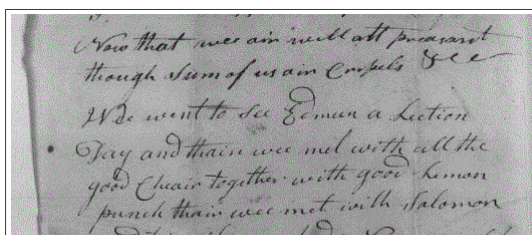 Now that wee air well att preasant
though Sum of us air Cripels &c
Wee went to See Edmun a Lection
Day and thair wee met with all the
good Cheair together with good Lemon
punch thair wee met with Salomon